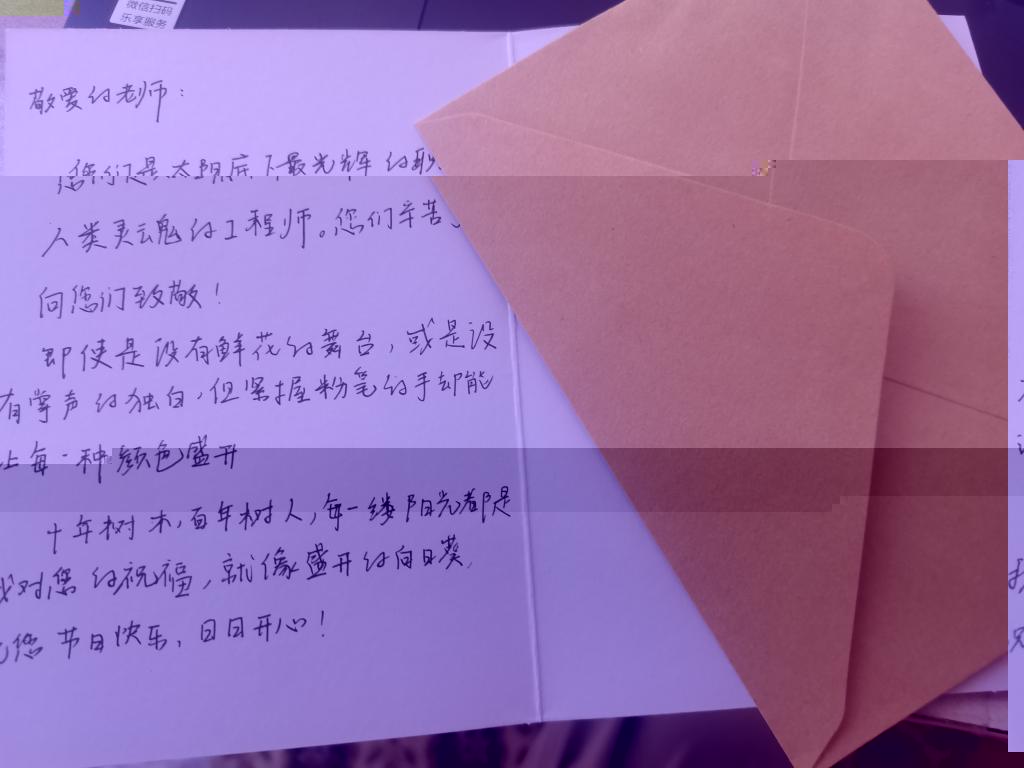 微信扫码
乐享服务
敬爱的老师：
您们是太阳底下最光辉的职
人类灵魂的工程师。您们辛苦
向您们致敬！
即使是没有鲜花的舞台，或是没
有掌声的独白，但紧握粉笔的手却能
上每一种颜色盛开
十年树木，百年树人，每一缕阳光都是
我对您的祝福，就像盛开的向日葵，
祝您节日快乐，日日开心！